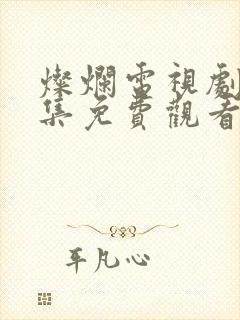 燦爛電視劇
集免費觀看
平凡心